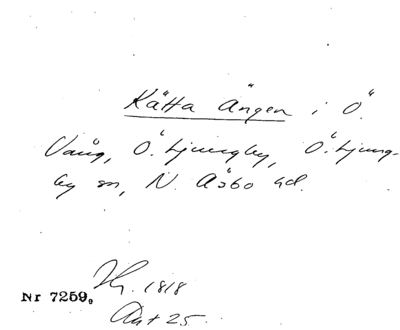 Kätta Ängen i Ö.
Vång, Ö. Ljungby, Ö. Ljung-
by sn, N. Åsbo hd.
Nr 7259,
1818
Akt 25.